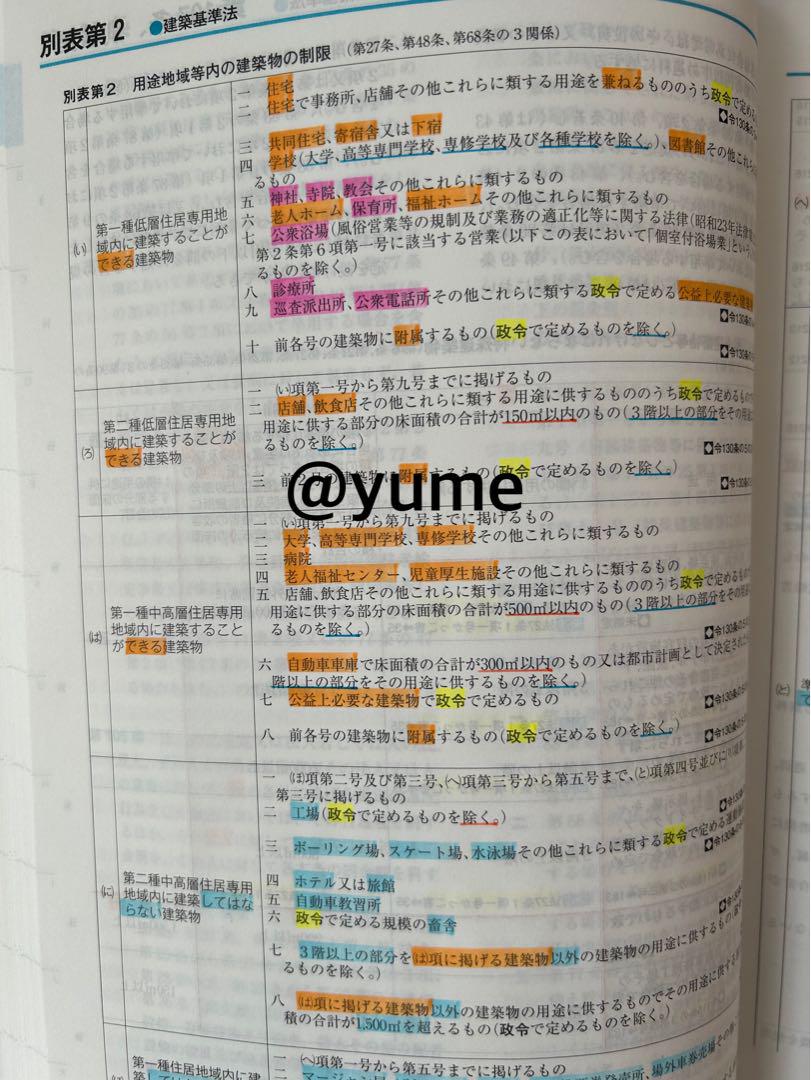 別表第2 ●建築基準法
別表第2 用途地域等内の建築物の制限 (第27条、第48条、第68条の3関係)
(い)
第一種低層住居専用地
域内に建築することが
できる建築物
一 住宅
二 住宅で事務所、店舗その他これらに類する用途を兼ねるもののうち政令で定める
令130条の
三 共同住宅、寄宿舎又は下宿
四 学校(大学、高等専門学校、専修学校及び各種学校を除く。)、図書館その他これら
るもの
五 神社、寺院、教会その他これらに類するもの
六 老人ホーム、保育所、福祉ホームその他これらに類するもの
七 公衆浴場(風俗営業等の規制及び業務の適正化等に関する法律(昭和23年法律
第2条第6項第一号に該当する営業(以下この表において「個室付浴場業」という。
るものを除く。)
八 診療所
九 巡査派出所、公衆電話所その他これらに類する政令で定める公益上必要な建築
令130条の
十 前各号の建築物に附属するもの(政令で定めるものを除く。)
令130条の
(ろ)
第二種低層住居専用地
域内に建築することが
できる建築物
一 (い)項第一号から第九号までに掲げるもの
二 店舗、飲食店その他これらに類する用途に供するもののうち政令で定めるもの
用途に供する部分の床面積の合計が150㎡以内のもの(3階以上の部分をその用途
るものを除く。)
令130条の5の
三 前2号の建築物に附属するもの(政令で定めるものを除く。)
令130条の5
@yume
(は)
第一種中高層住居専用
地域内に建築すること
ができる建築物
一 (い)項第一号から第九号までに掲げるもの
二 大学、高等専門学校、専修学校その他これらに類するもの
三 病院
四 老人福祉センター、児童厚生施設その他これらに類するもの
五 店舗、飲食店その他これらに類する用途に供するもののうち政令で定めるもの
用途に供する部分の床面積の合計が500㎡以内のもの(3階以上の部分をその用途
るものを除く。)
令130条の5の
六 自動車車庫で床面積の合計が300㎡以内のもの又は都市計画として決定された
階以上の部分をその用途に供するものを除く。)
七 公益上必要な建築物で政令で定めるもの
令130条の5の
八 前各号の建築物に附属するもの(政令で定めるものを除く。)
令130条の5の
(に)
第二種中高層住居専用
地域内に建築してはな
らない建築物
一 (ほ)項第二号及び第三号、(へ)項第三号から第五号まで、(と)項第四号並びに(り)項
第三号に掲げるもの
二 工場(政令で定めるものを除く。)
令130条
三 ボーリング場、スケート場、水泳場その他これらに類する政令で定める運動
令130条の
四 ホテル又は旅館
五 自動車教習所
六 政令で定める規模の畜舎
令130条
七 3階以上の部分を(は)項に掲げる建築物以外の建築物の用途に供するもの(政
るものを除く。)
八 (は)項に掲げる建築物以外の建築物の用途に供するものでその用途に供する
積の合計が1,500㎡を超えるもの(政令で定めるものを除く。)
第一種住居地域内に建
一 (へ)項第一号から第五号までに掲げるもの